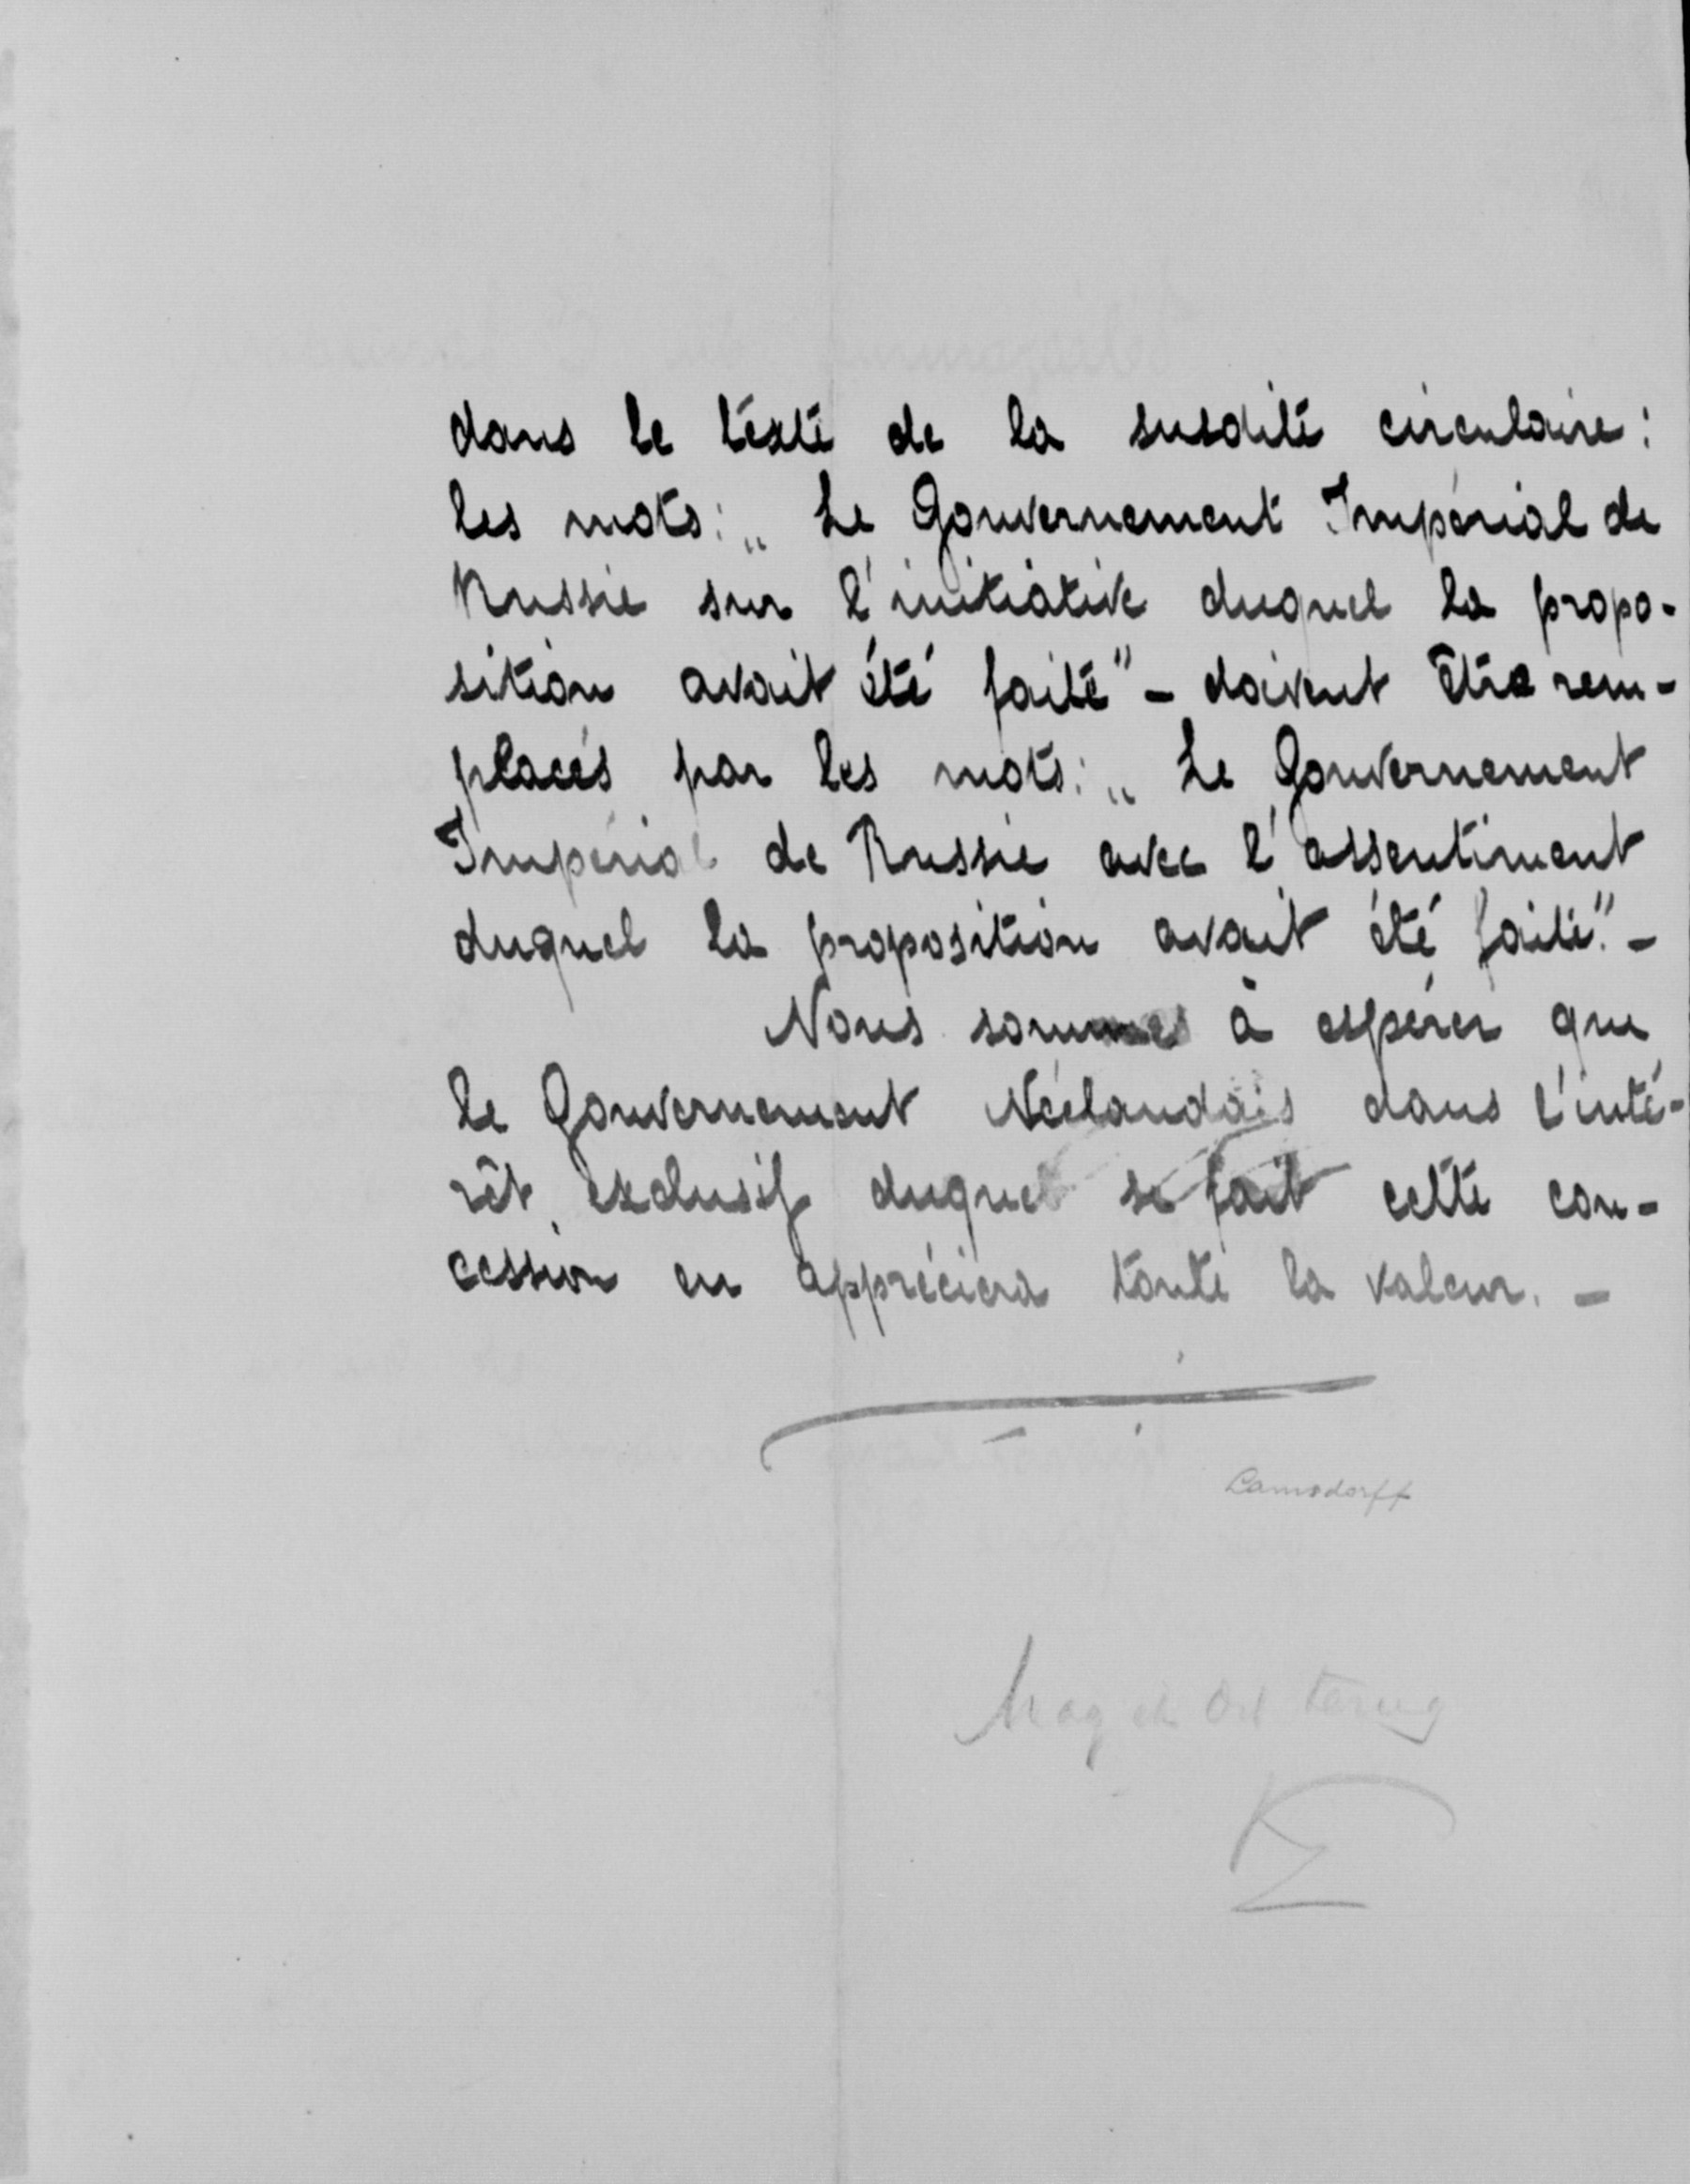 dans le texte de la susdite circulaire :
les mots : „ Le Gouvernement Impérial de
Russie sur l'initiative duquel la propo-
sition avait été faite" - doivent être rem-
placés par les mots : „ Le Gouvernement
Impérial de Russie avec l'assentiment
duquel la proposition avait été faite". -
Nous sommes à espérer que
le Gouvernement Néelandais dans l'inté-
rêt exclusif duquel se fait cette con-
cession en appréciera toute la valeur. -
Lamsdorff
Mag ik dit terug